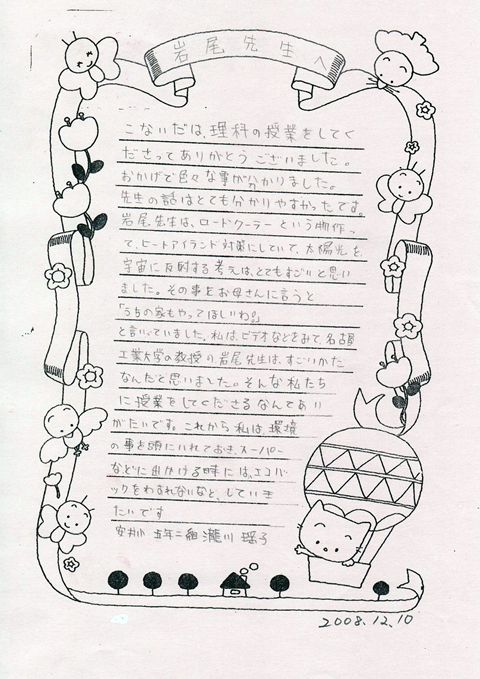 岩尾先生へ
こないだは、理科の授業をしてく
ださってありがとうございました。
おかげで色々な事が分かりました。
先生の話はとても分かりやすかったです。
岩尾先生は、ロードクーラーという物作っ
て、ヒートアイランド対策にしていて、太陽光を、
宇宙に反射する考えは、とてもすごいと思い
ました。その事をお母さんに言うと
「うちの家もやってほしいわ。」
と言っていました。私は、ビデオなどをみて、名古屋
工業大学の教授の岩尾先生は、すごいかた
なんだと思いました。そんな私たち
に授業をしてくださるなんてあり
がたいです。これから私は、環境
の事を頭にいれておき、スーパー
などに出かける時には、エコバ
ックをわすれないなど、していき
たいです
五年二組 瀧川 瑶子
2008.12.10